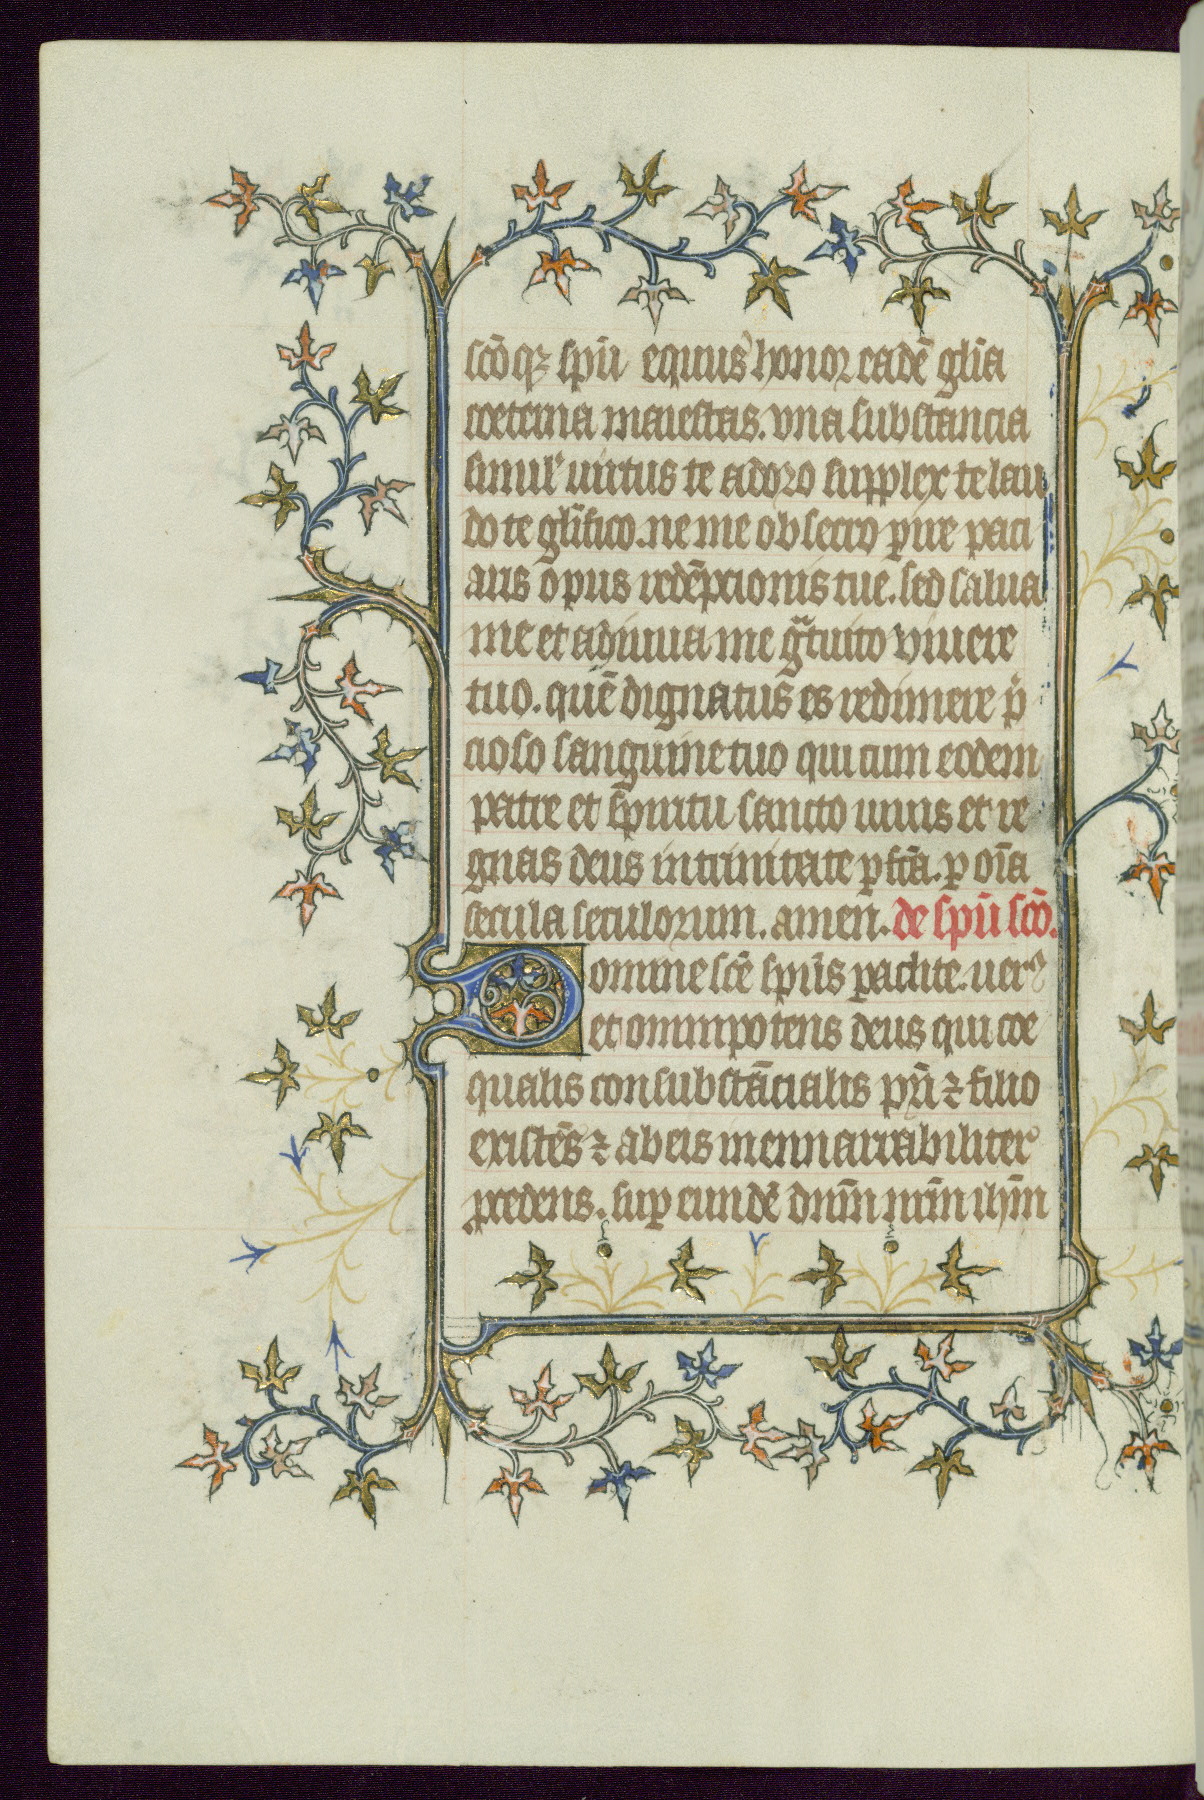 scōqꝫ spūi equus honor eadē gl̄ia
coeterna maiestas. vna substancia
simul' uirtus te adoro supplex te lau
do te gl̄ifico. ne me obsecro ꝑire paci
aris opus redēpcionis tue. sed salua
me et adiuua me gͣtuito viuere
tuo. quē dignatus es redimere p̄
cioso sanguine tuo qui cum eodem
patre et spiritu sancto uiuis et re
gnas deus in trinitate ꝑfcā. ꝑ oīa
secula seculorum. amen. de spū scō.
Domine scē spūs paclite. uerꝰ
et omnipotens deus qui coe
qualis consubstācialis pr̄i ⁊ filio
existēs ⁊ ab eis inennarrabiliter
ꝓcedens. suꝑ eundē dnūm nrm̄ ihm̄